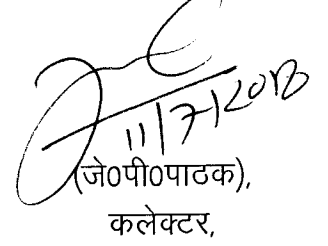 11/7/2013
(जे0पी0पाठक),
कलेक्टर,